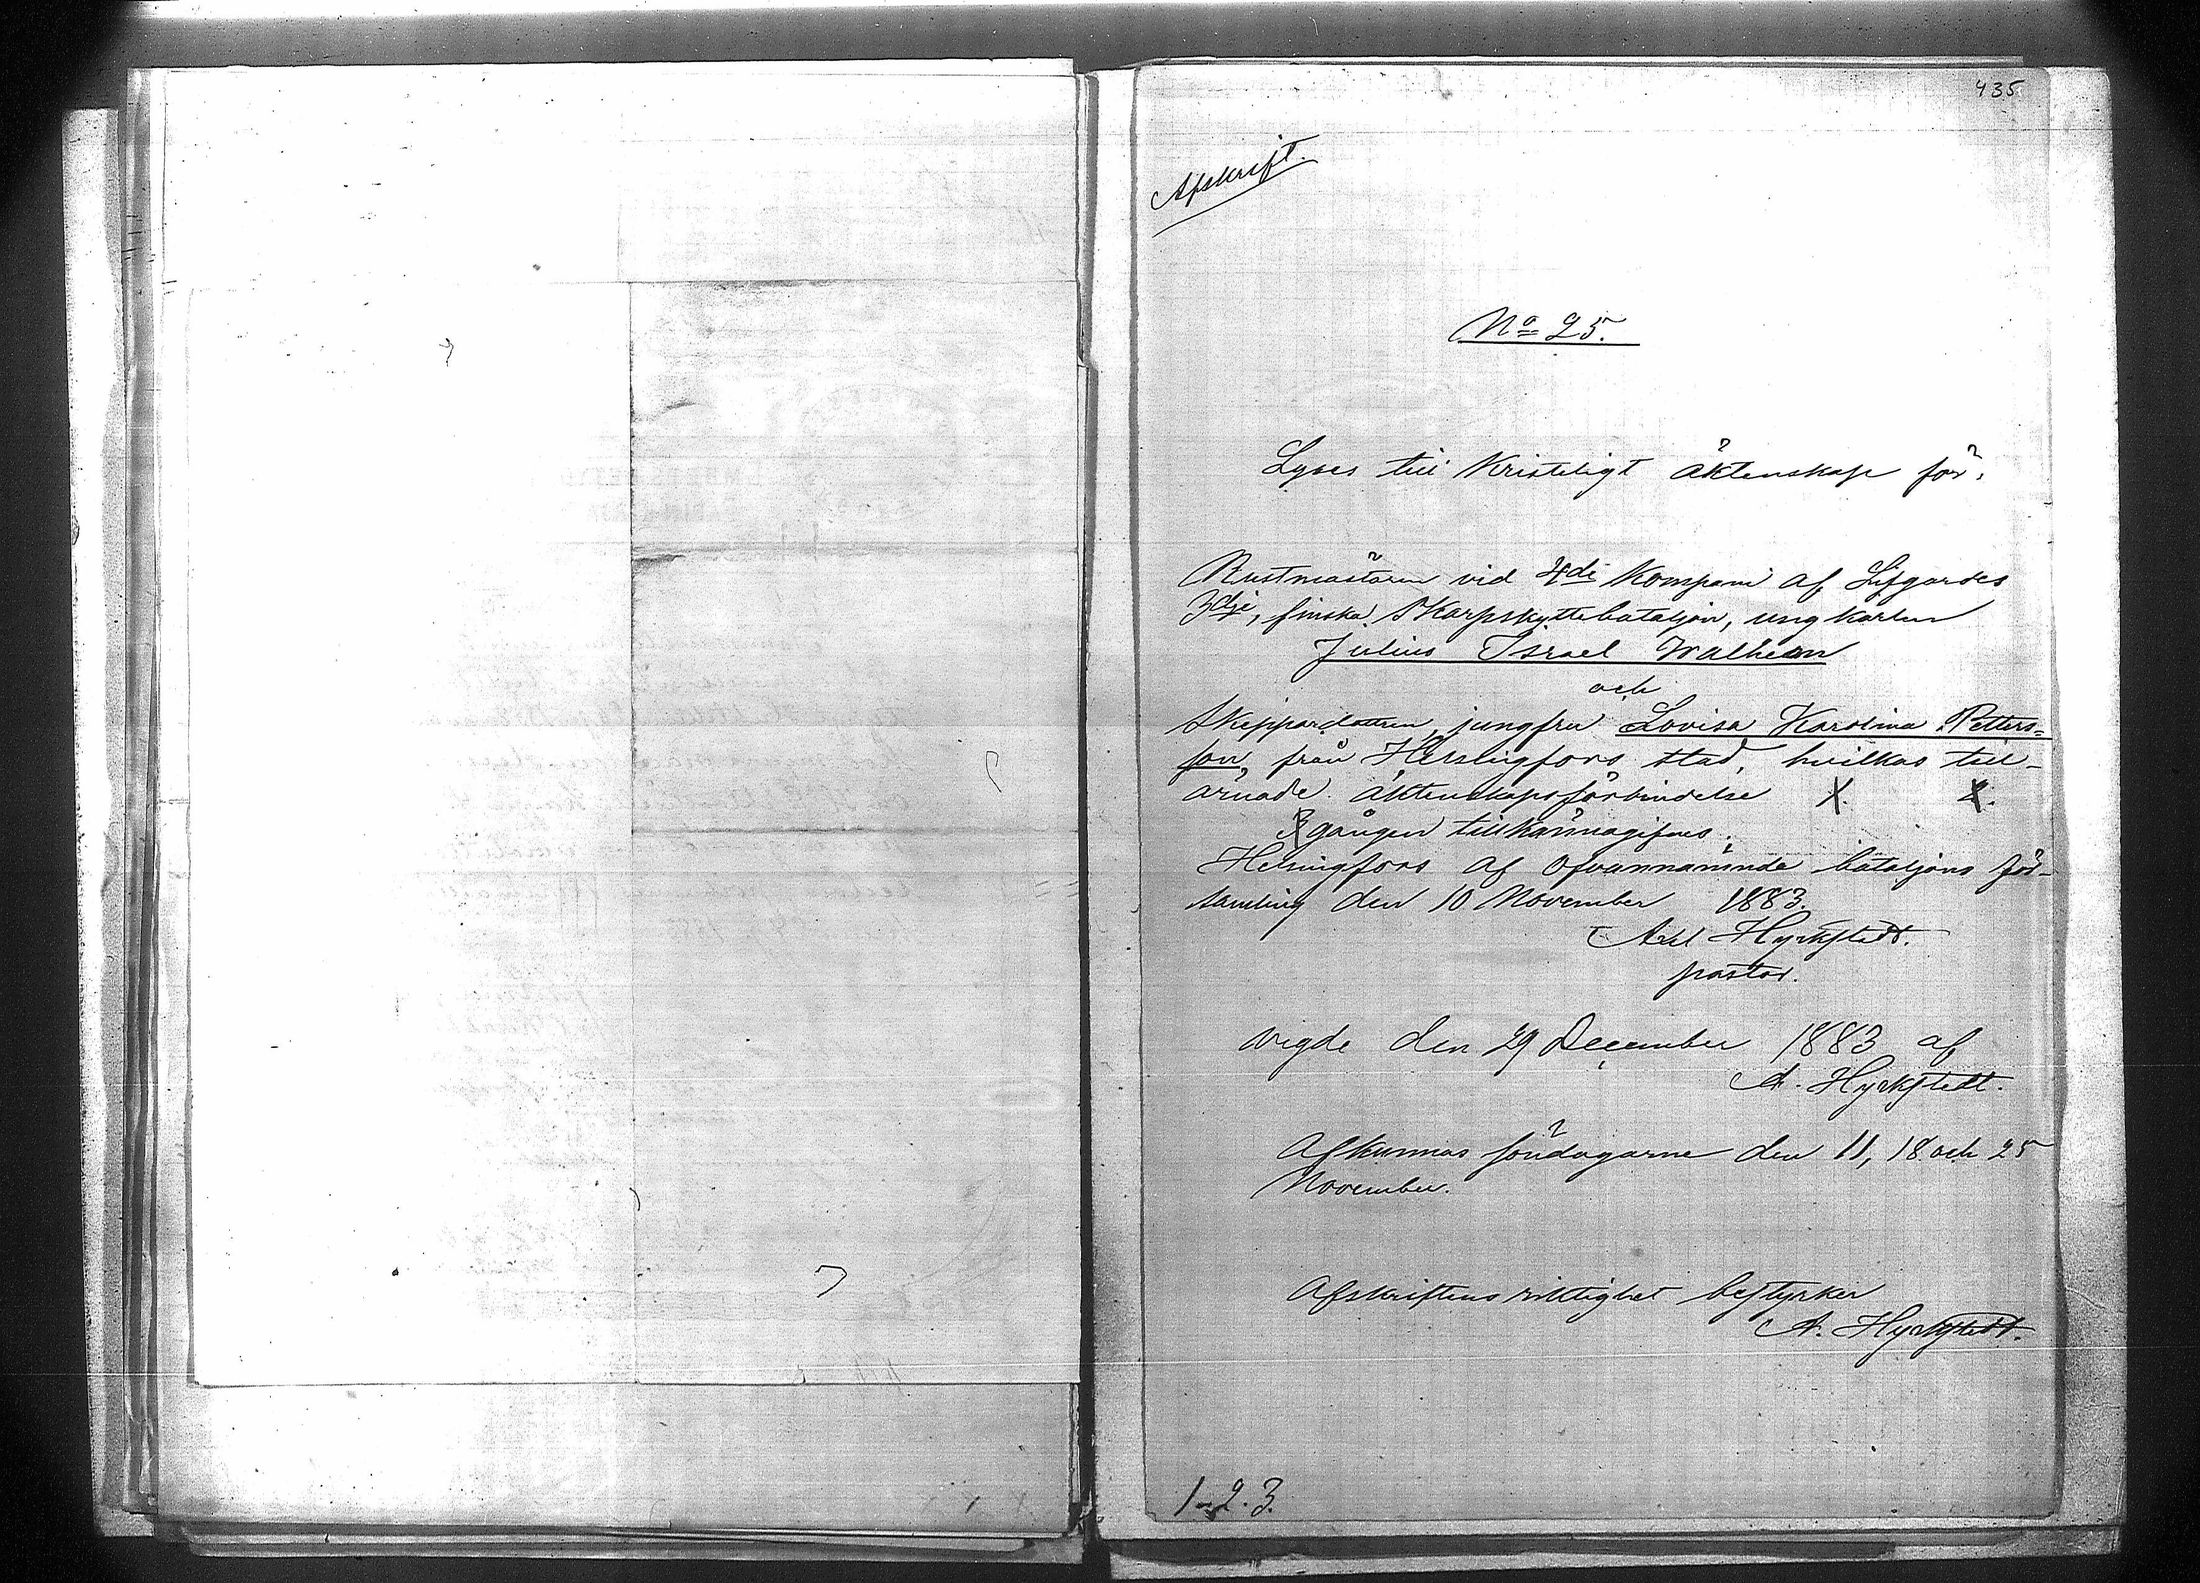 435
Afskrift.
No 25.
Lyses till Kristeligt äktenskap för.
Rustmästaren vid 4de Kompani af Lifgardes
3dje, finska Skarpskyttebataljon, ungkarlen
Julius Israel Walheen
och
Skeppardottren, jungfru Lovisa Karolina Petters=
son, från Helsingfors stad, hvilkas till-
ärnade äktenskapsförbindelse 1. 2.
3 gången tillkännagifves.
Helsingfors af ofvannämnde bataljons för-
samling den 10 November 1883.
Axel Hyrkstedt.
pastor.
Vigde den 29 December 1883 af
A. Hyrkstedt.
Afkunnas söndagarne den 11, 18 och 25
November.
Afskriftens riktighet bestyrker
A. Hyrkstedt.
1-2.3.